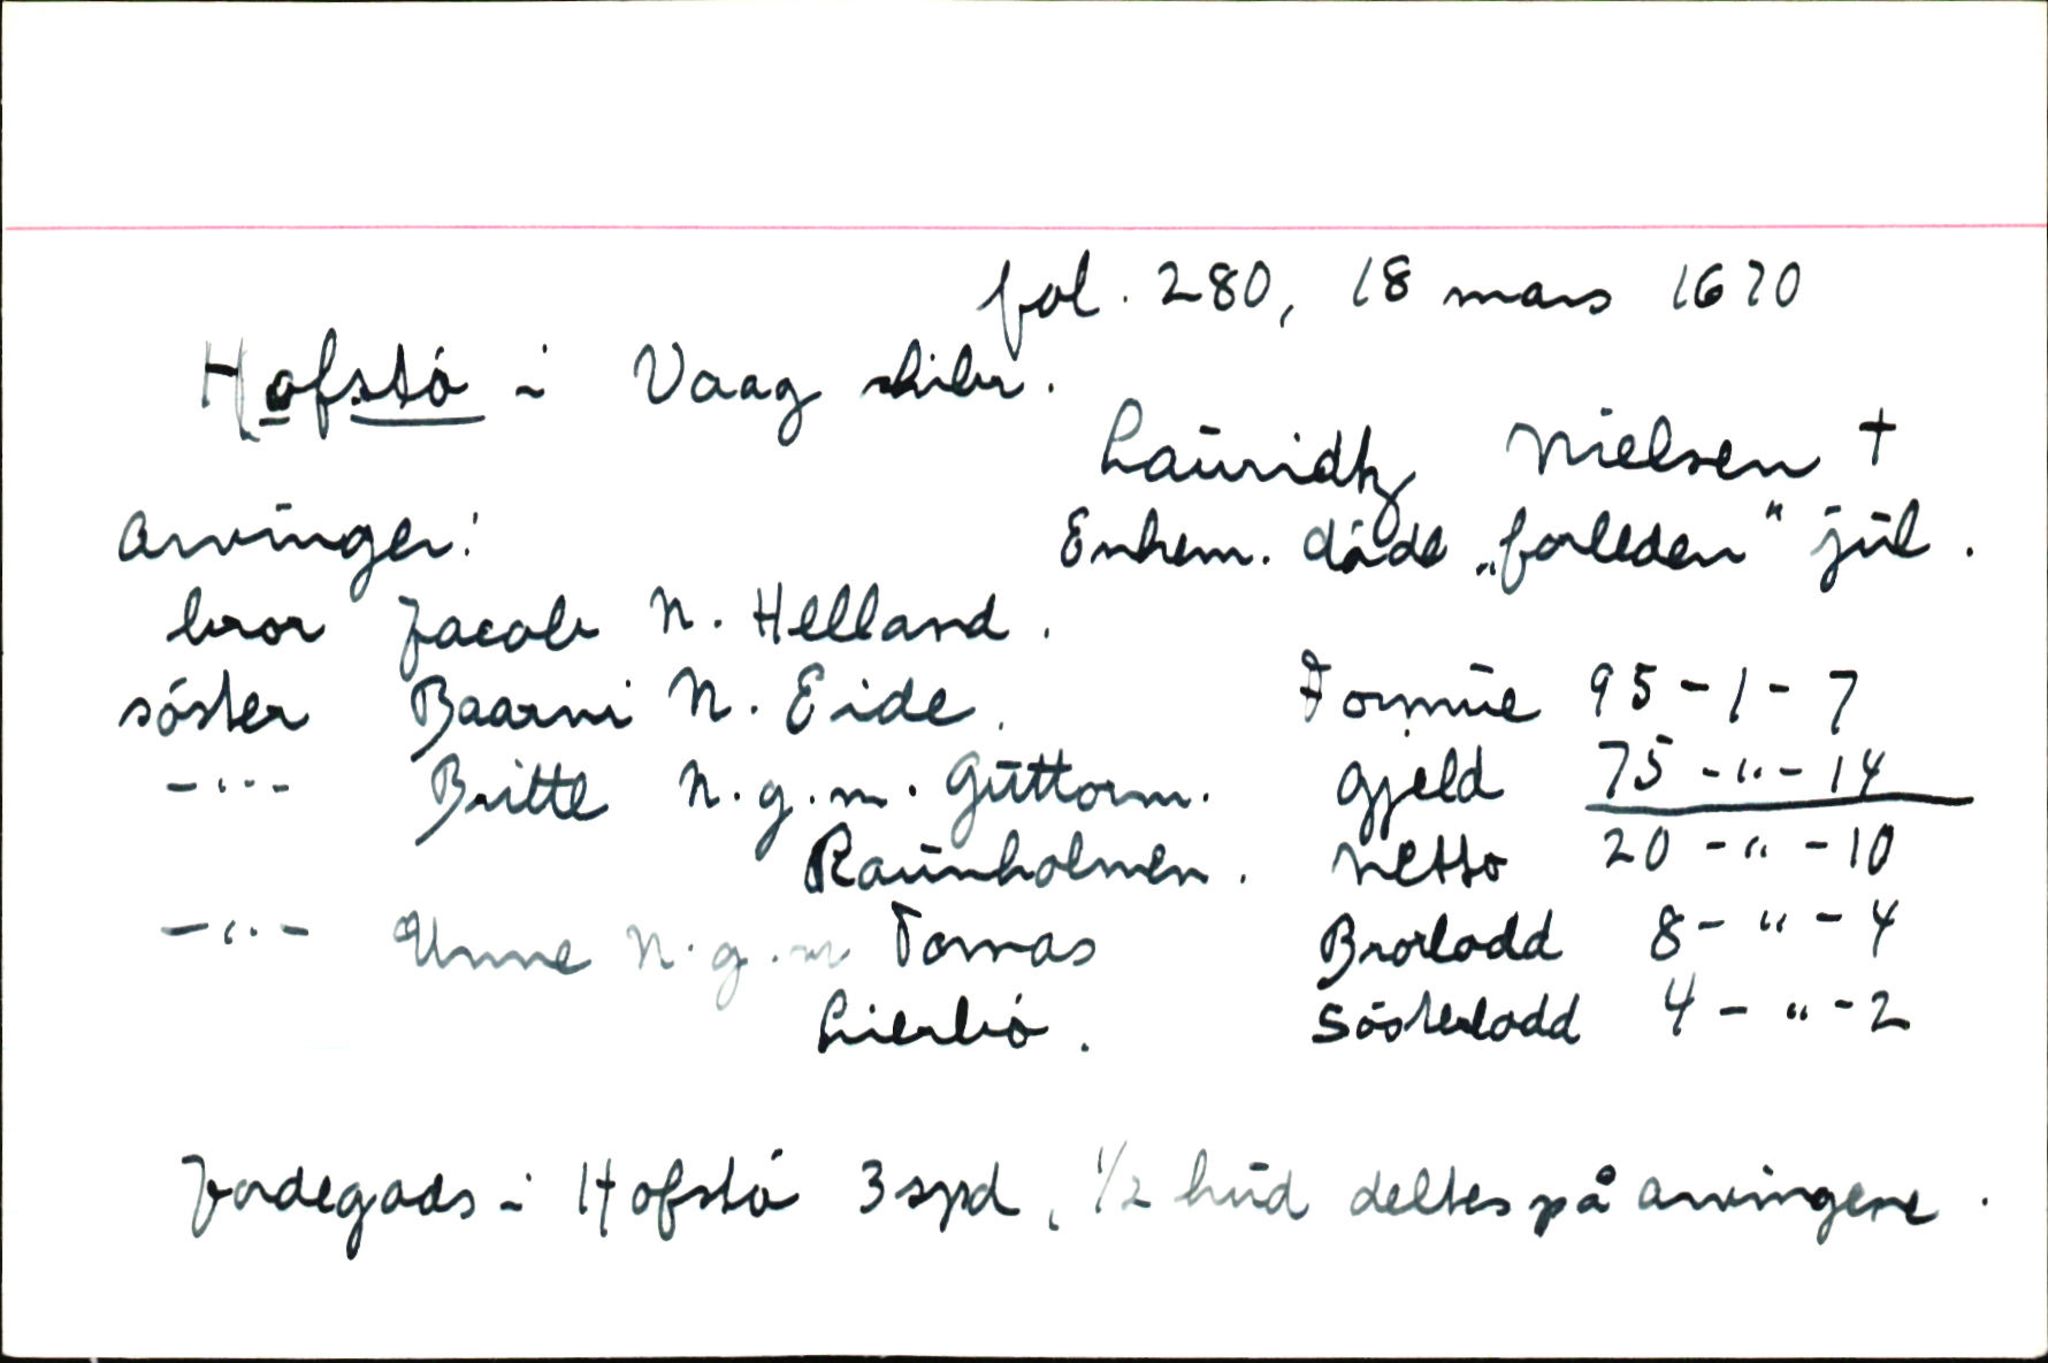 fol. 280, 18 mars 1670
Hofstö i Vaag skibr.
Lauridtz Nielsen †
Arvinger:
Enkem. döde „forleden" jul.
bror Jacob N. Helland.
söster Baarni N. Eide.
Formue 95 - 1 - 7
-"- Britte N. g. m. Guttorm.
Raunholmen.
Gjeld 75 - " - 14
Netto 20 - " - 10
-"- Unne N. g. m Tomas
Lierbö.
Brorlodd 8 - " - 4
Sösterlodd 4 - " - 2
Jordegods i Hofstö 3 spd, 1/2 hud deltes på arvingene.